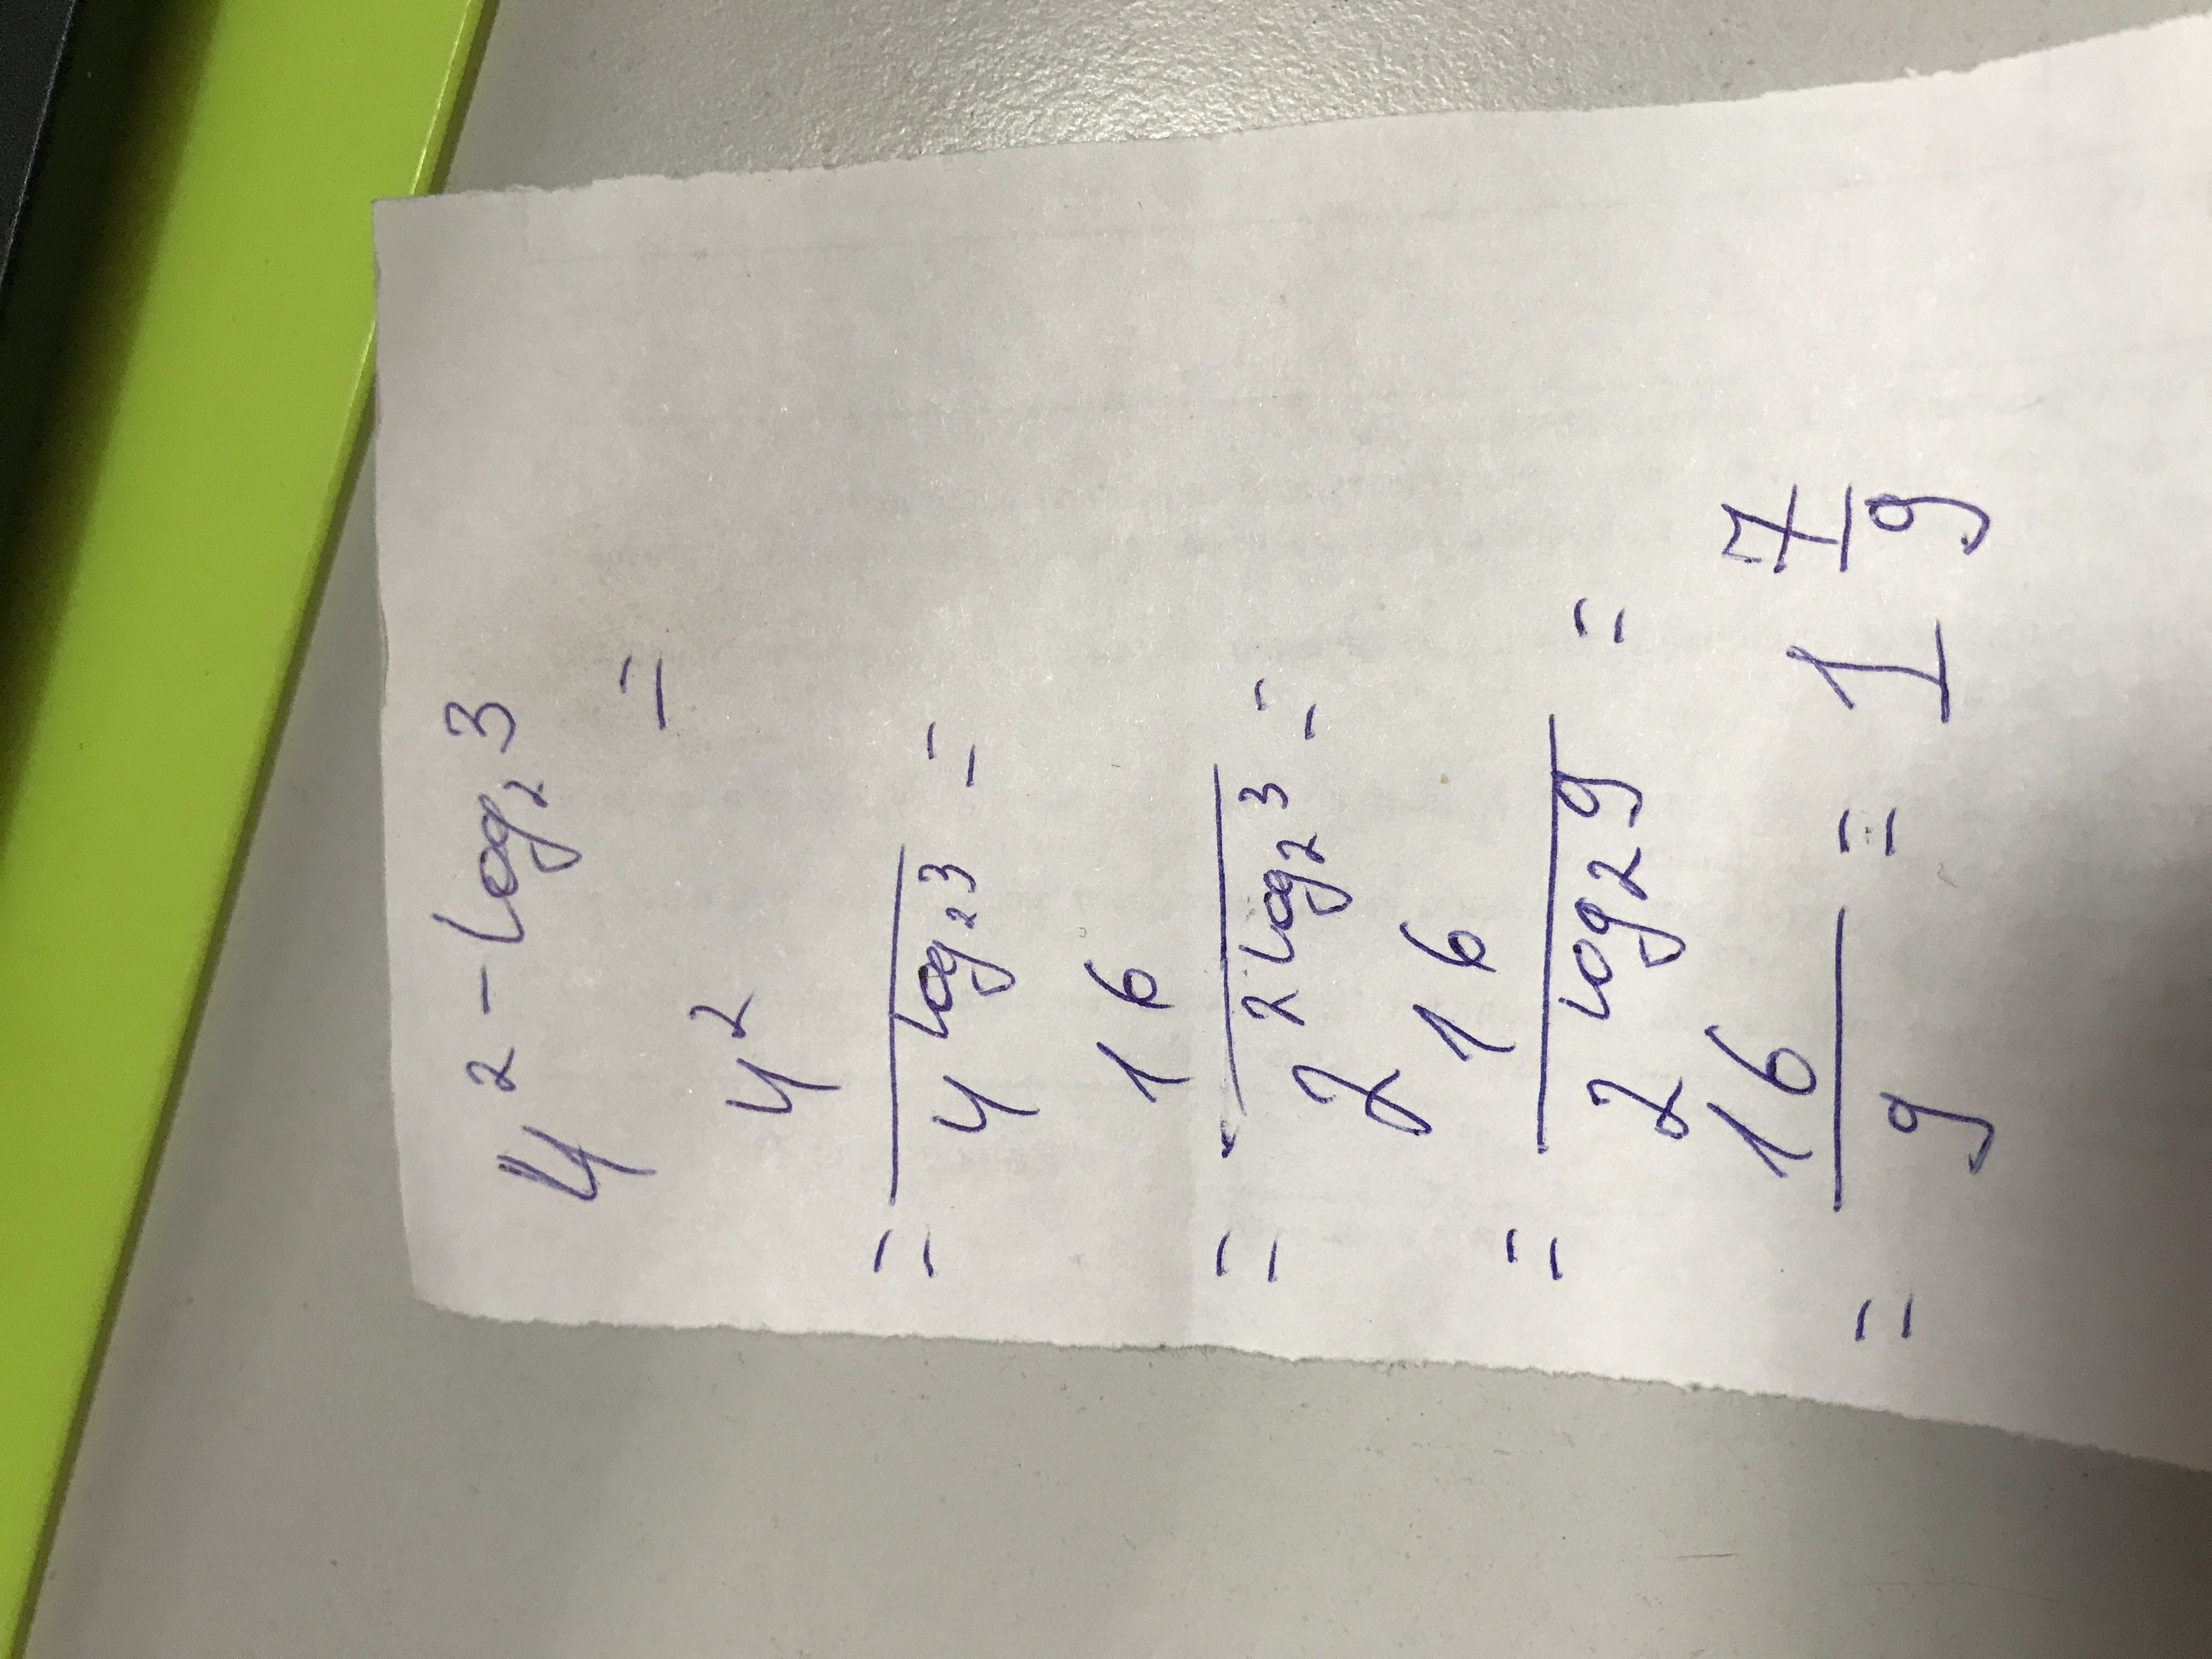 4^{2-log_2 3} =
= \frac{4^2}{4^{log_2 3}} =
= \frac{16}{2^{2 log_2 3}} =
= \frac{16}{2^{log_2 9}} =
= \frac{16}{9} = 1 \frac{7}{9}